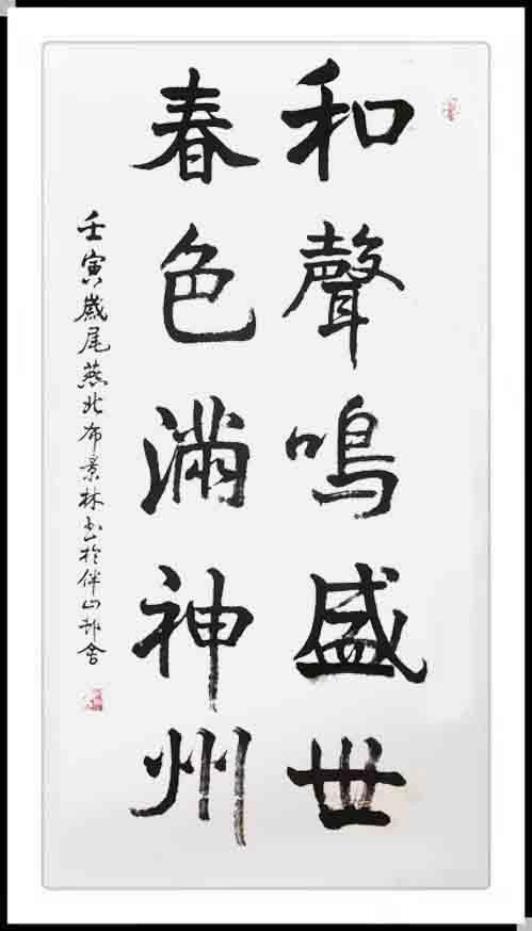 和聲鳴盛世
春色滿神州
壬寅歲尾燕北布景林書於伴山邨舍